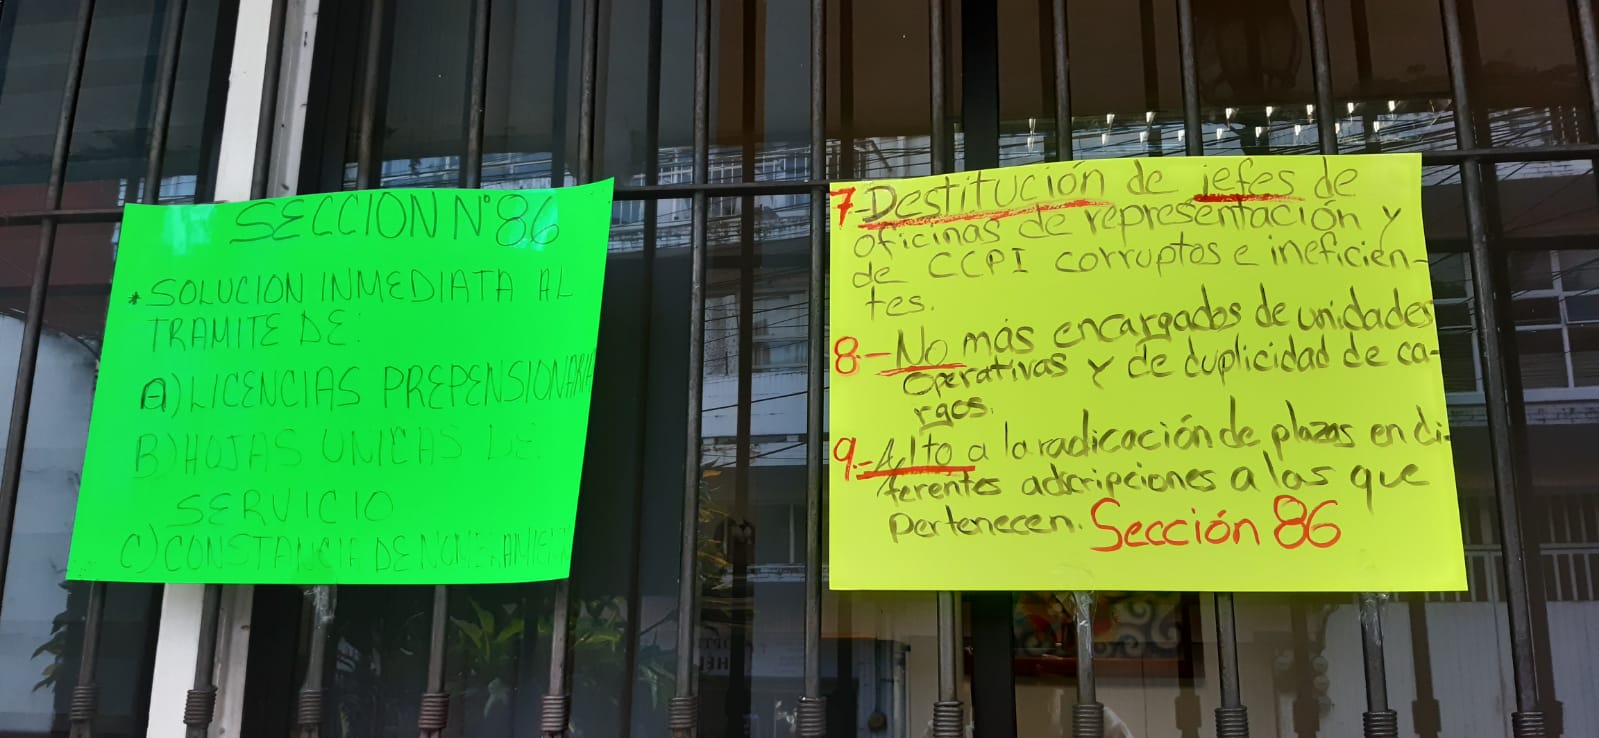 SECCION N°86
* SOLUCION INMEDIATA AL
TRAMITE DE:
A) LICENCIAS PREPENSIONARIA
B) HOJAS UNICAS DE:
SERVICIO
C) CONSTANCIA DE NOMBRAMIENT
7-Destitución de jefes de
oficinas de representación y
de CCPI corruptos e ineficien-
tes.
8.-No más encargados de unidades
operativas y de duplicidad de ca-
rgos.
9.-Alto a la radicación de plazas en di-
ferentes adscripciones a las que
pertenecen. Sección 86